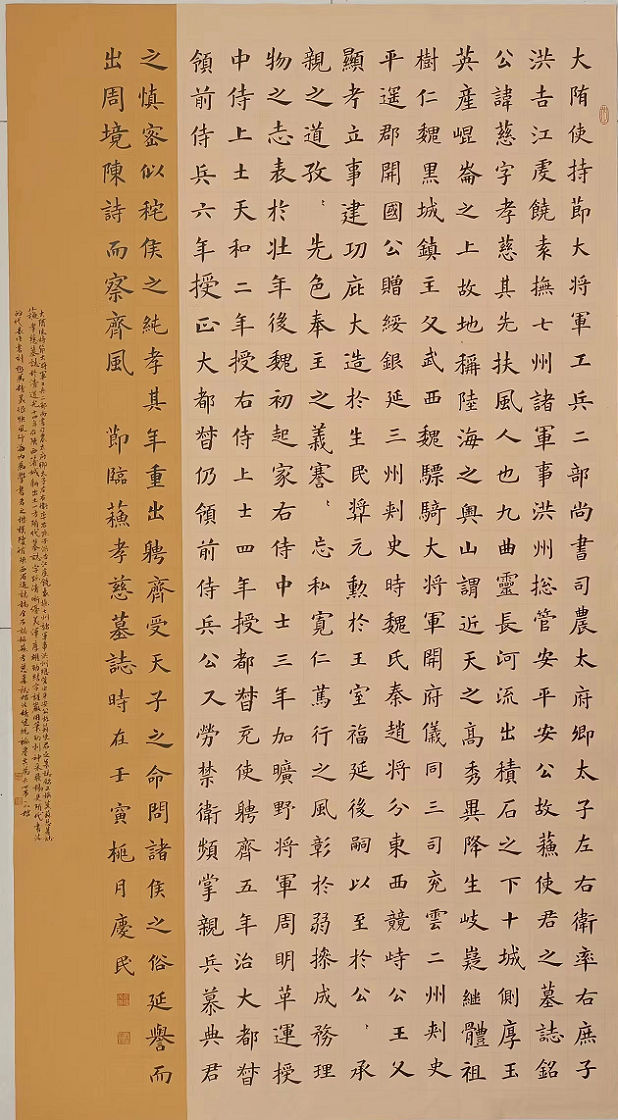 大隋使持節大將軍工兵二部尚書司農太府卿太子左右衛率右庶子
洪吉江虔饒袁撫七州諸軍事洪州捴管安平安公故蘓使君之墓誌銘
公諱慈字孝慈其先扶風人也九曲靈長河流出積石之下十城側厚玉
英產崐崙之上故地稱陸海之輿山謂近天之高秀異降生岐嶷継體祖
樹仁魏黑城鎮主父武西魏驃騎大將軍開府儀同三司兖雲二州刾史
平遥郡開國公贈綏銀延三州刾史時魏氏秦趙將分東西競峙公王父
顯考立事建功庇大造於生民奨元勳於王室福延後嗣以至於公、承
親之道孜、先色奉主之義謇、忘私寬仁篤行之風彰於弱操成務理
物之志表於壮年後魏初起家右侍中士三年加曠野將軍周明革運授
中侍上士天和二年授右侍上士四年授都督充使聘齊五年治大都督
領前侍兵六年授正大都督仍領前侍兵公又勞禁衛頻掌親兵慕典君
之慎密似秺侯之純孝其年重出聘齊受天子之命問諸侯之俗延譽而
出周境陳詩而察齊風 節臨蘓孝慈墓誌時在壬寅桃月慶民